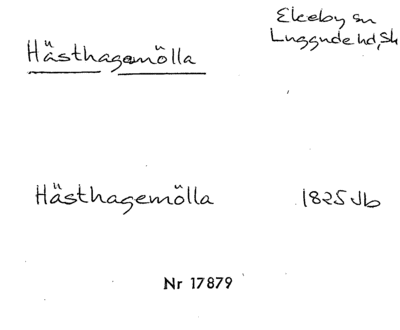 Ekeby sn
Luggude hd, Sk
Hästhagemölla
Hästhagemölla 1825 Jb
Nr 17879